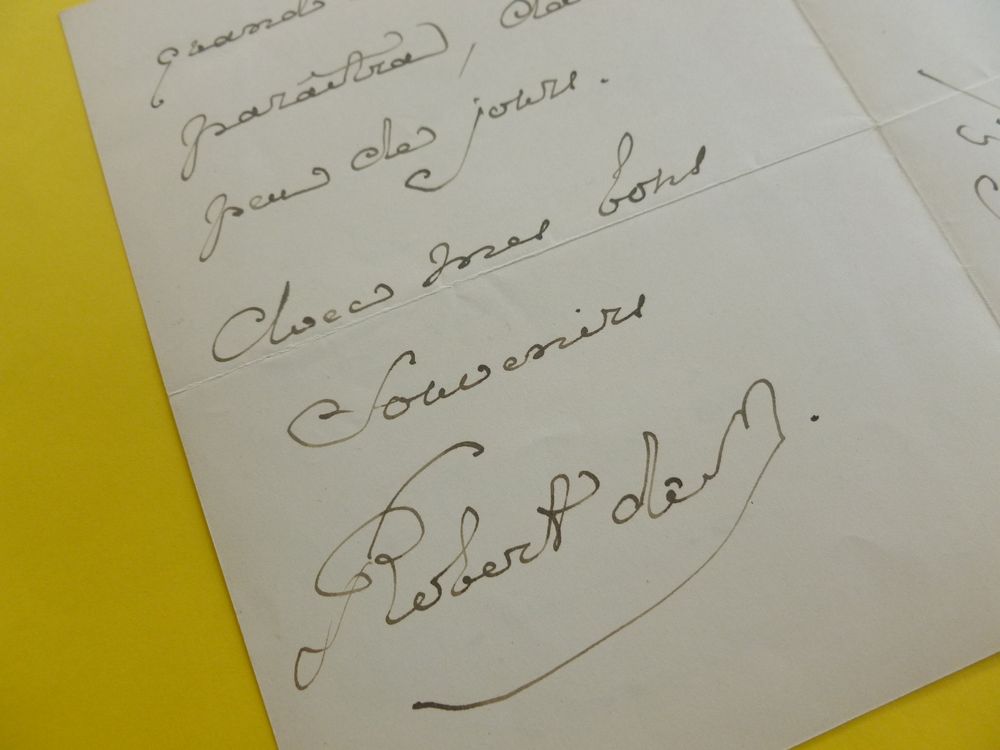 quand
paraîtra, da
peu de jours.
Avec mes bons
Souvenirs
Robert de M.